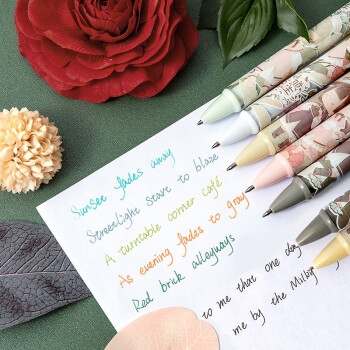 Sunset fades away
Streetlight start to blaze
A turntable corner café
As evening fades to gray
Red brick alleyways
to me that one day
me by the Milky